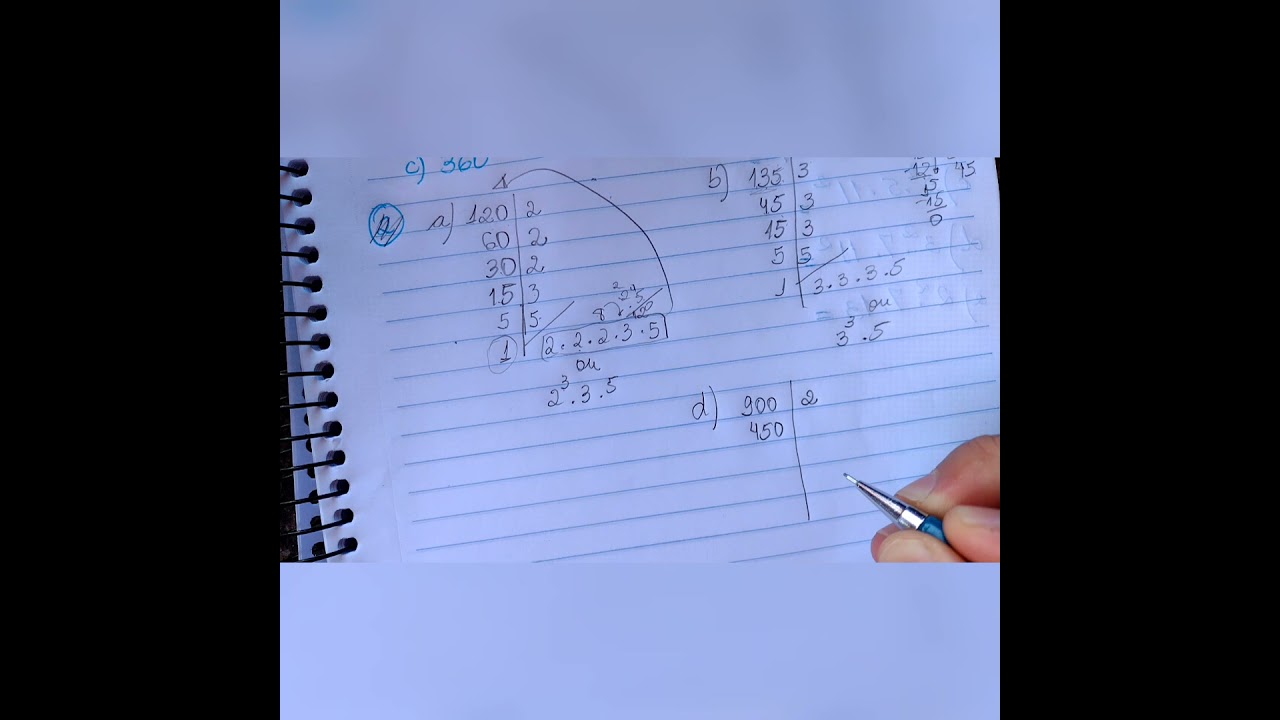 c) 360
a) 120 | 2
60 | 2
30 | 2
15 | 3
5 | 5
1 | 2 . 2 . 2 . 3 . 5
ou
2³ . 3 . 5
b) 135 | 3
45 | 3
15 | 3
5 | 5
1 | 3 . 3 . 3 . 5
ou
3³ . 5
45
15
-15
0
d) 900 | 2
450